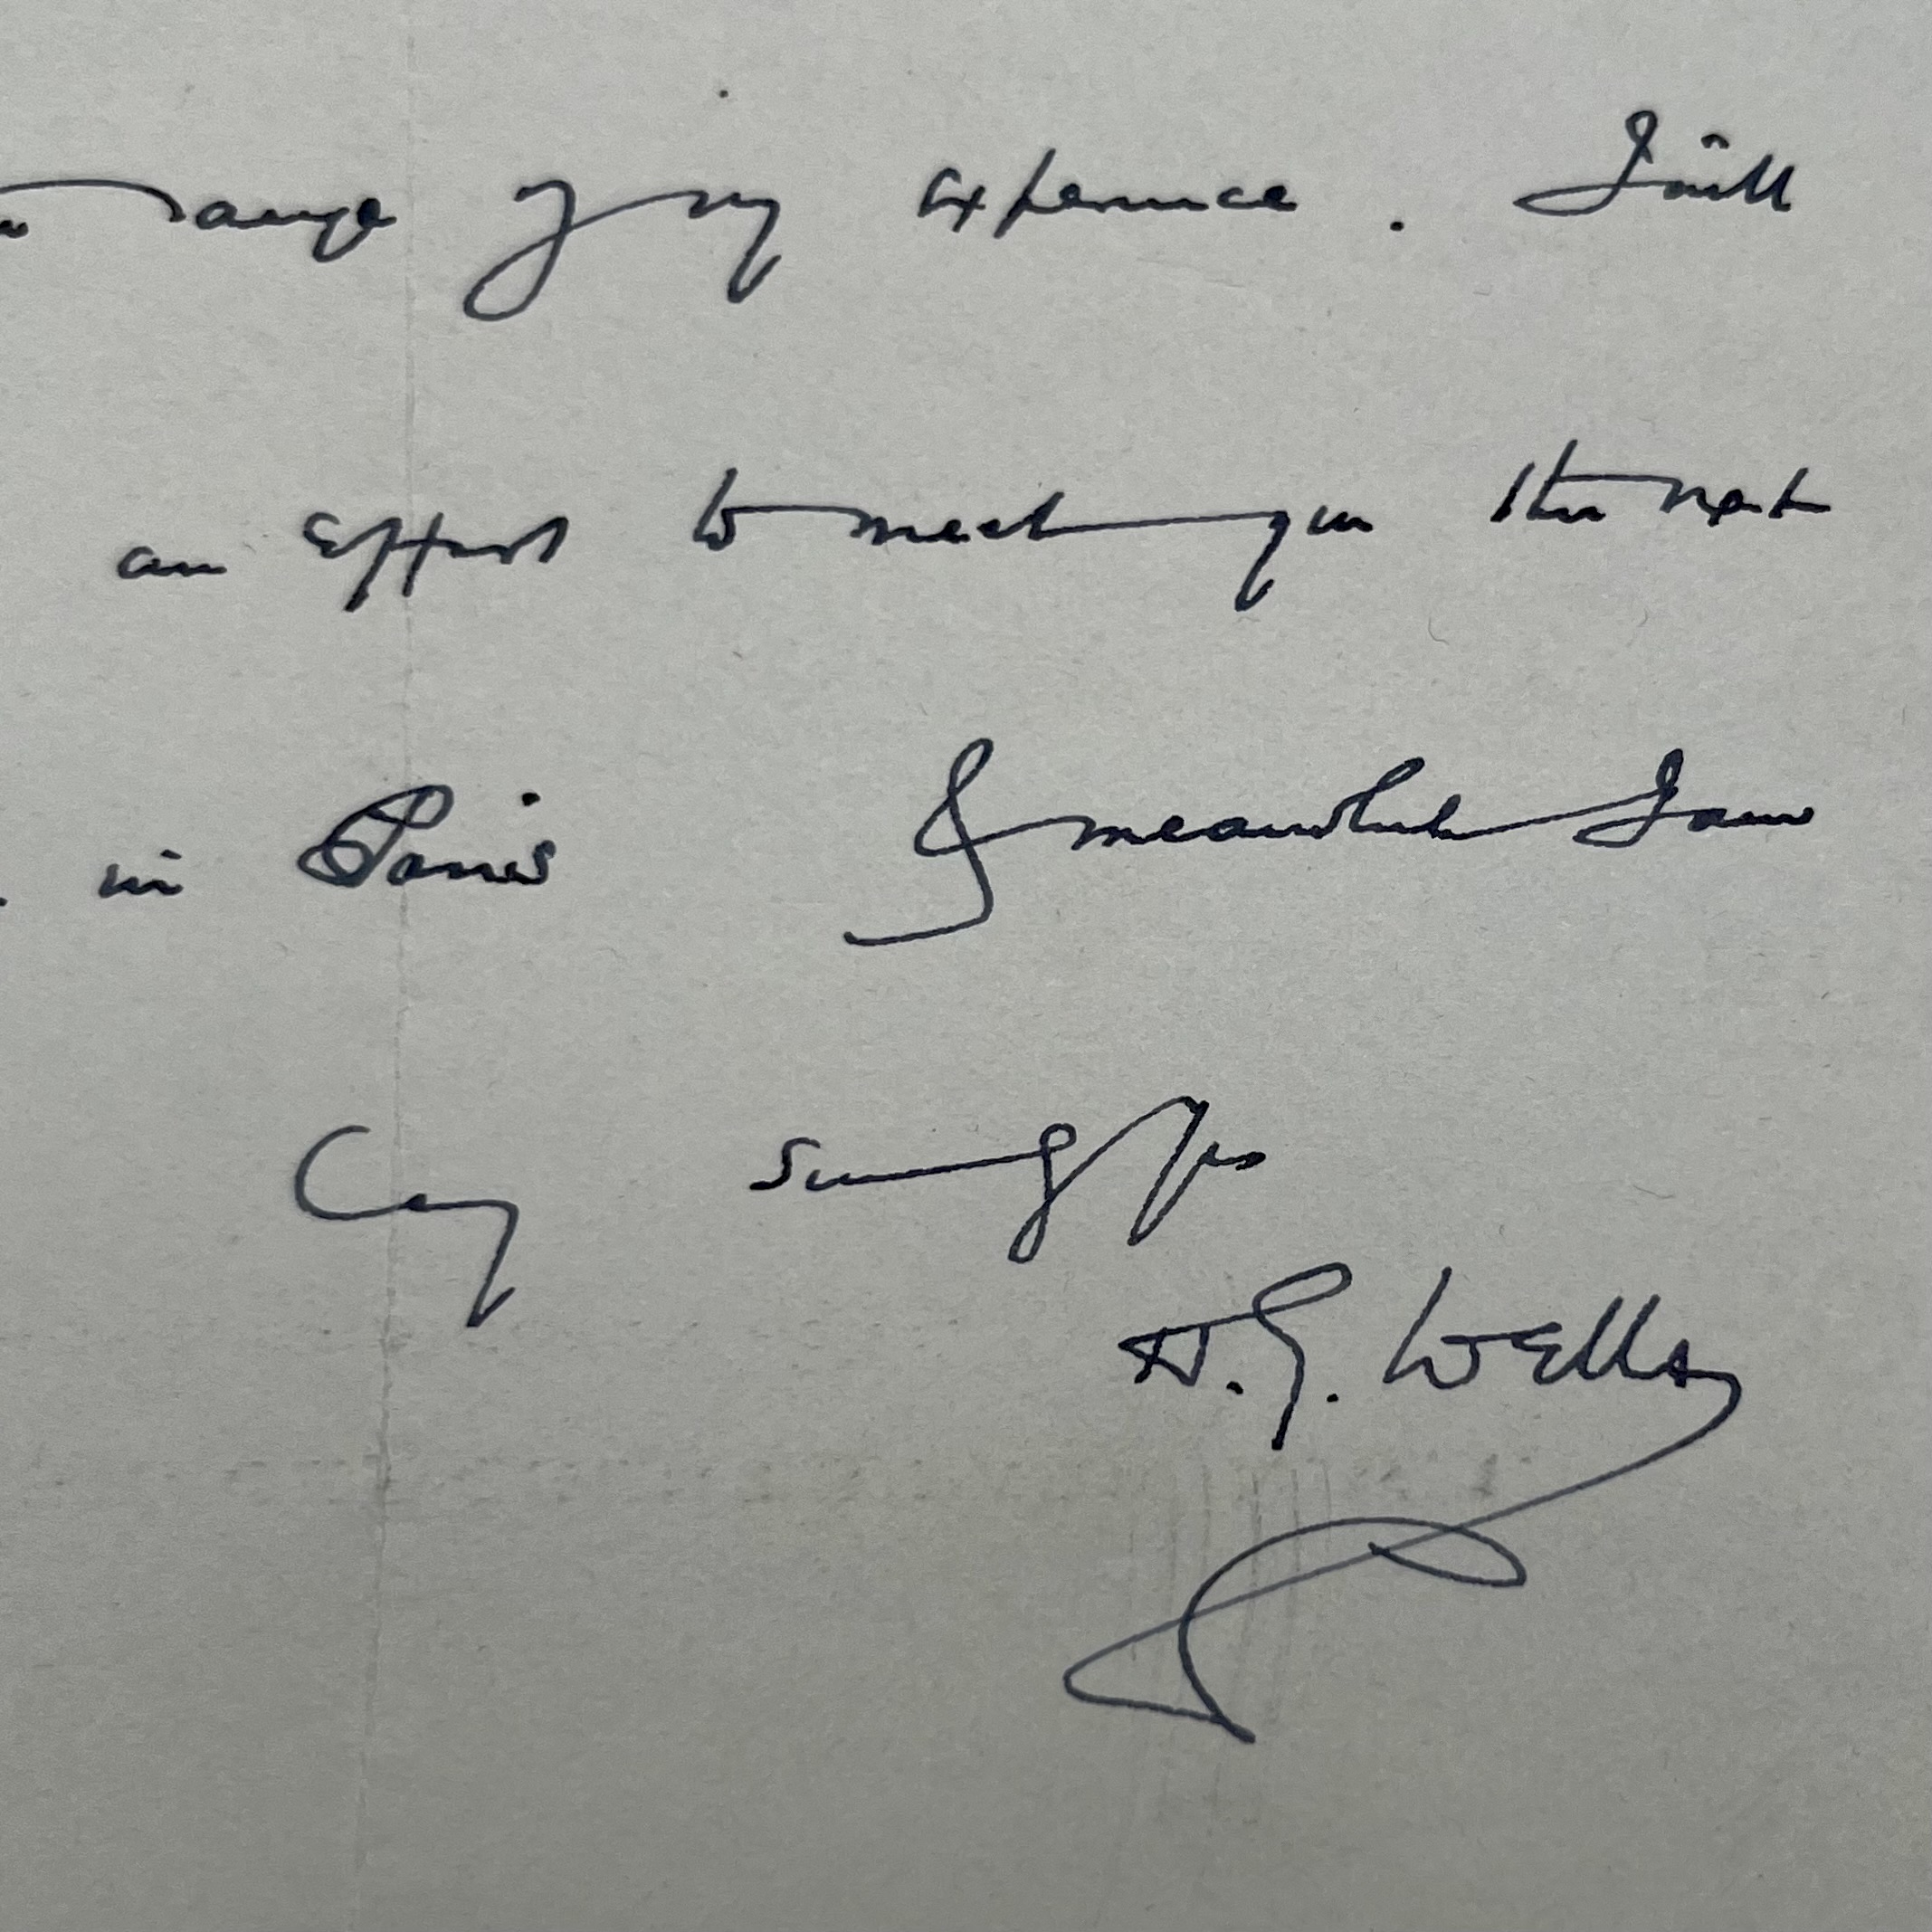 range of my experience. I will
an effort to meet you the next
in Paris & meanwhile I am
Very sincerely yours
H.G. Wells